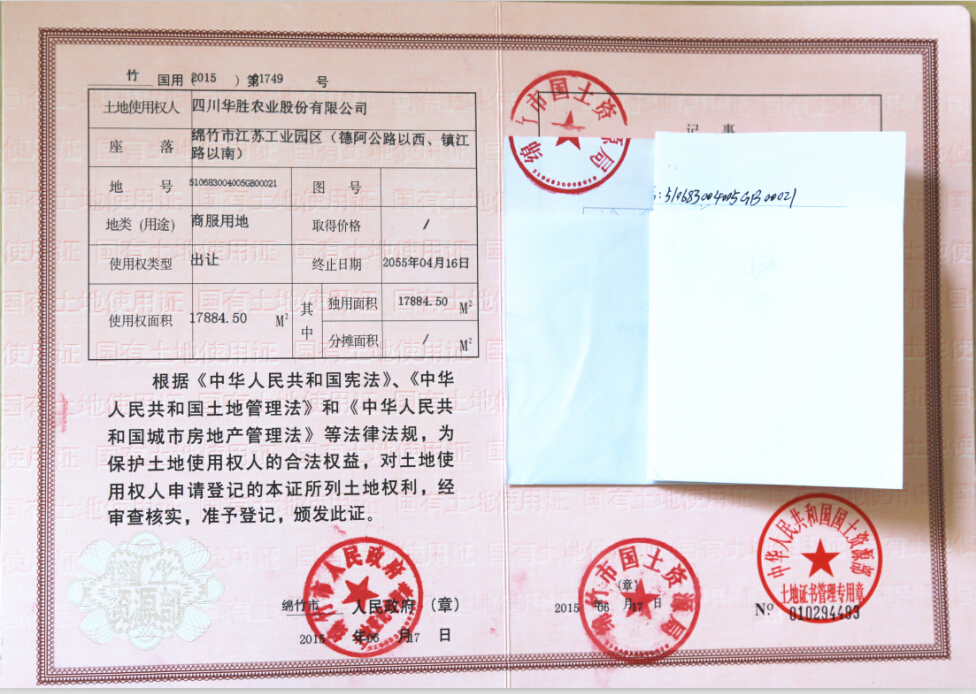 竹 国用（2015 ）第01749 号
土地使用权人 四川华胜农业股份有限公司
座 落 绵竹市江苏工业园区（德阿公路以西、镇江
路以南）
地 号 510683004005GB00021 图 号
地类（用途） 商服用地 取得价格 /
使用权类型 出让 终止日期 2055年04月16日
使用权面积 17884.50 M² 其中 独用面积 17884.50 M²
分摊面积 / M²
根据《中华人民共和国宪法》、《中华
人民共和国土地管理法》和《中华人民共
和国城市房地产管理法》等法律法规，为
保护土地使用权人的合法权益，对土地使
用权人申请登记的本证所列土地权利，经
审查核实，准予登记，颁发此证。
绵竹市 人民政府（章）
2015 年06 月17 日
绵竹市人民政府
记 事
市国土资
绵 局
:510683004005GB00021
（章）
2015 年06 月17 日
绵竹市国土资源局
中华人民共和国国土资源部
土地证书管理专用章
Nº 010294493